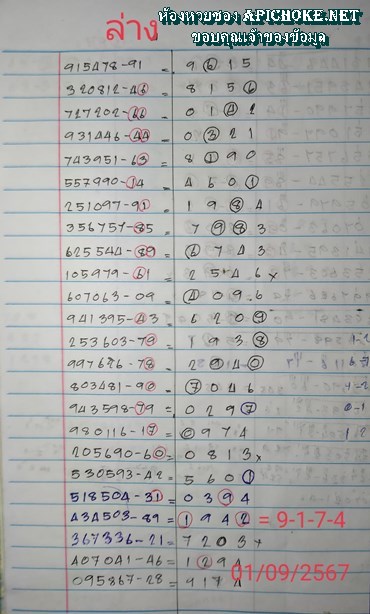 ห้องหวยซอง APICHOKE.NET
ขอบคุณเจ้าของข้อมูล
ล่าง
915478-91 = 9615
320812-46 = 8156
727202-66 = 0142
931446-44 = 0321
743951-63 = 8190
557990-14 = 4601
251097-91 = 1984
356757-85 = 7983
625544-89 = 6743
105979-61 = 2546 x
607063-09 = 4096
941395-43 = 6209
253603-79 = 1938
997626-78 = 2940
803481-90 = 7046
943598-79 = 0297
980116-17 = 0974
205690-60 = 0813 x
530593-42 = 5601
518504-31 = 0394
434503-89 = 1942 = 9-1-7-4
367336-21 = 7203 x
407041-46 = 1294
095867-28 = 9174
01/09/2567